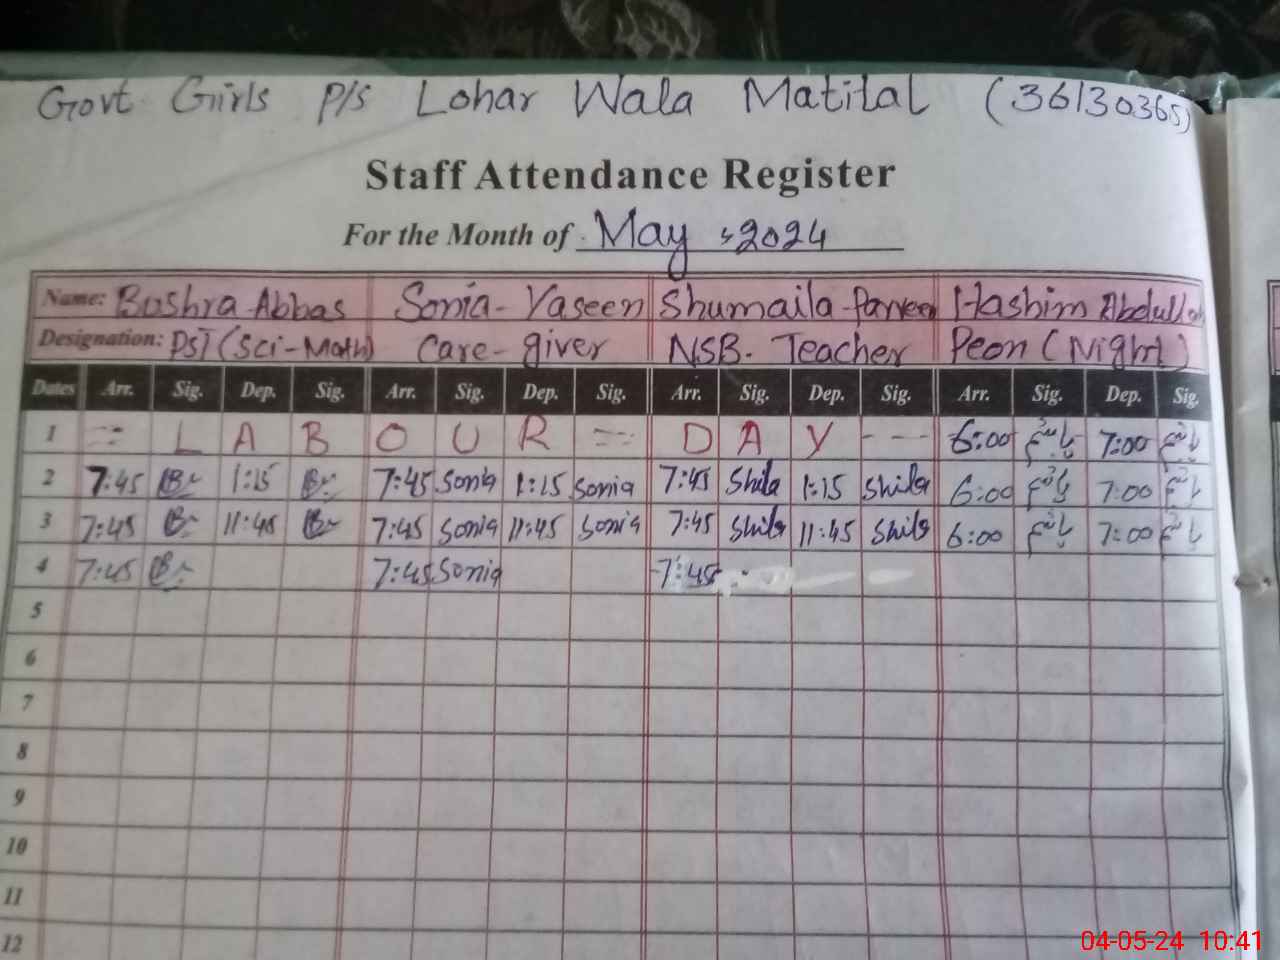 Govt Girls P/S Lohar Wala Matital (36130365)
Staff Attendance Register
For the Month of May, 2024
Name: Bushra-Abbas Sonia-Yaseen Shumaila-Parveen Hashim Abdullah
Designation: PST (Sci-Math) Care-giver NSB. Teacher Peon (Night)
Dates Arr. Sig. Dep. Sig. Arr. Sig. Dep. Sig. Arr. Sig. Dep. Sig. Arr. Sig. Dep. Sig.
1 L A B O U R D A Y 6:00 ہاشم 7:00 ہاشم
2 7:45 1:15 7:45 Sonia 1:15 Sonia 7:45 Shila 1:15 Shila 6:00 ہاشم 7:00 ہاشم
3 7:45 11:45 7:45 Sonia 11:45 Sonia 7:45 Shila 11:45 Shila 6:00 ہاشم 7:00 ہاشم
4 7:45 7:45 Sonia 7:45
5
6
7
8
9
10
11
12
04-05-24 10:41